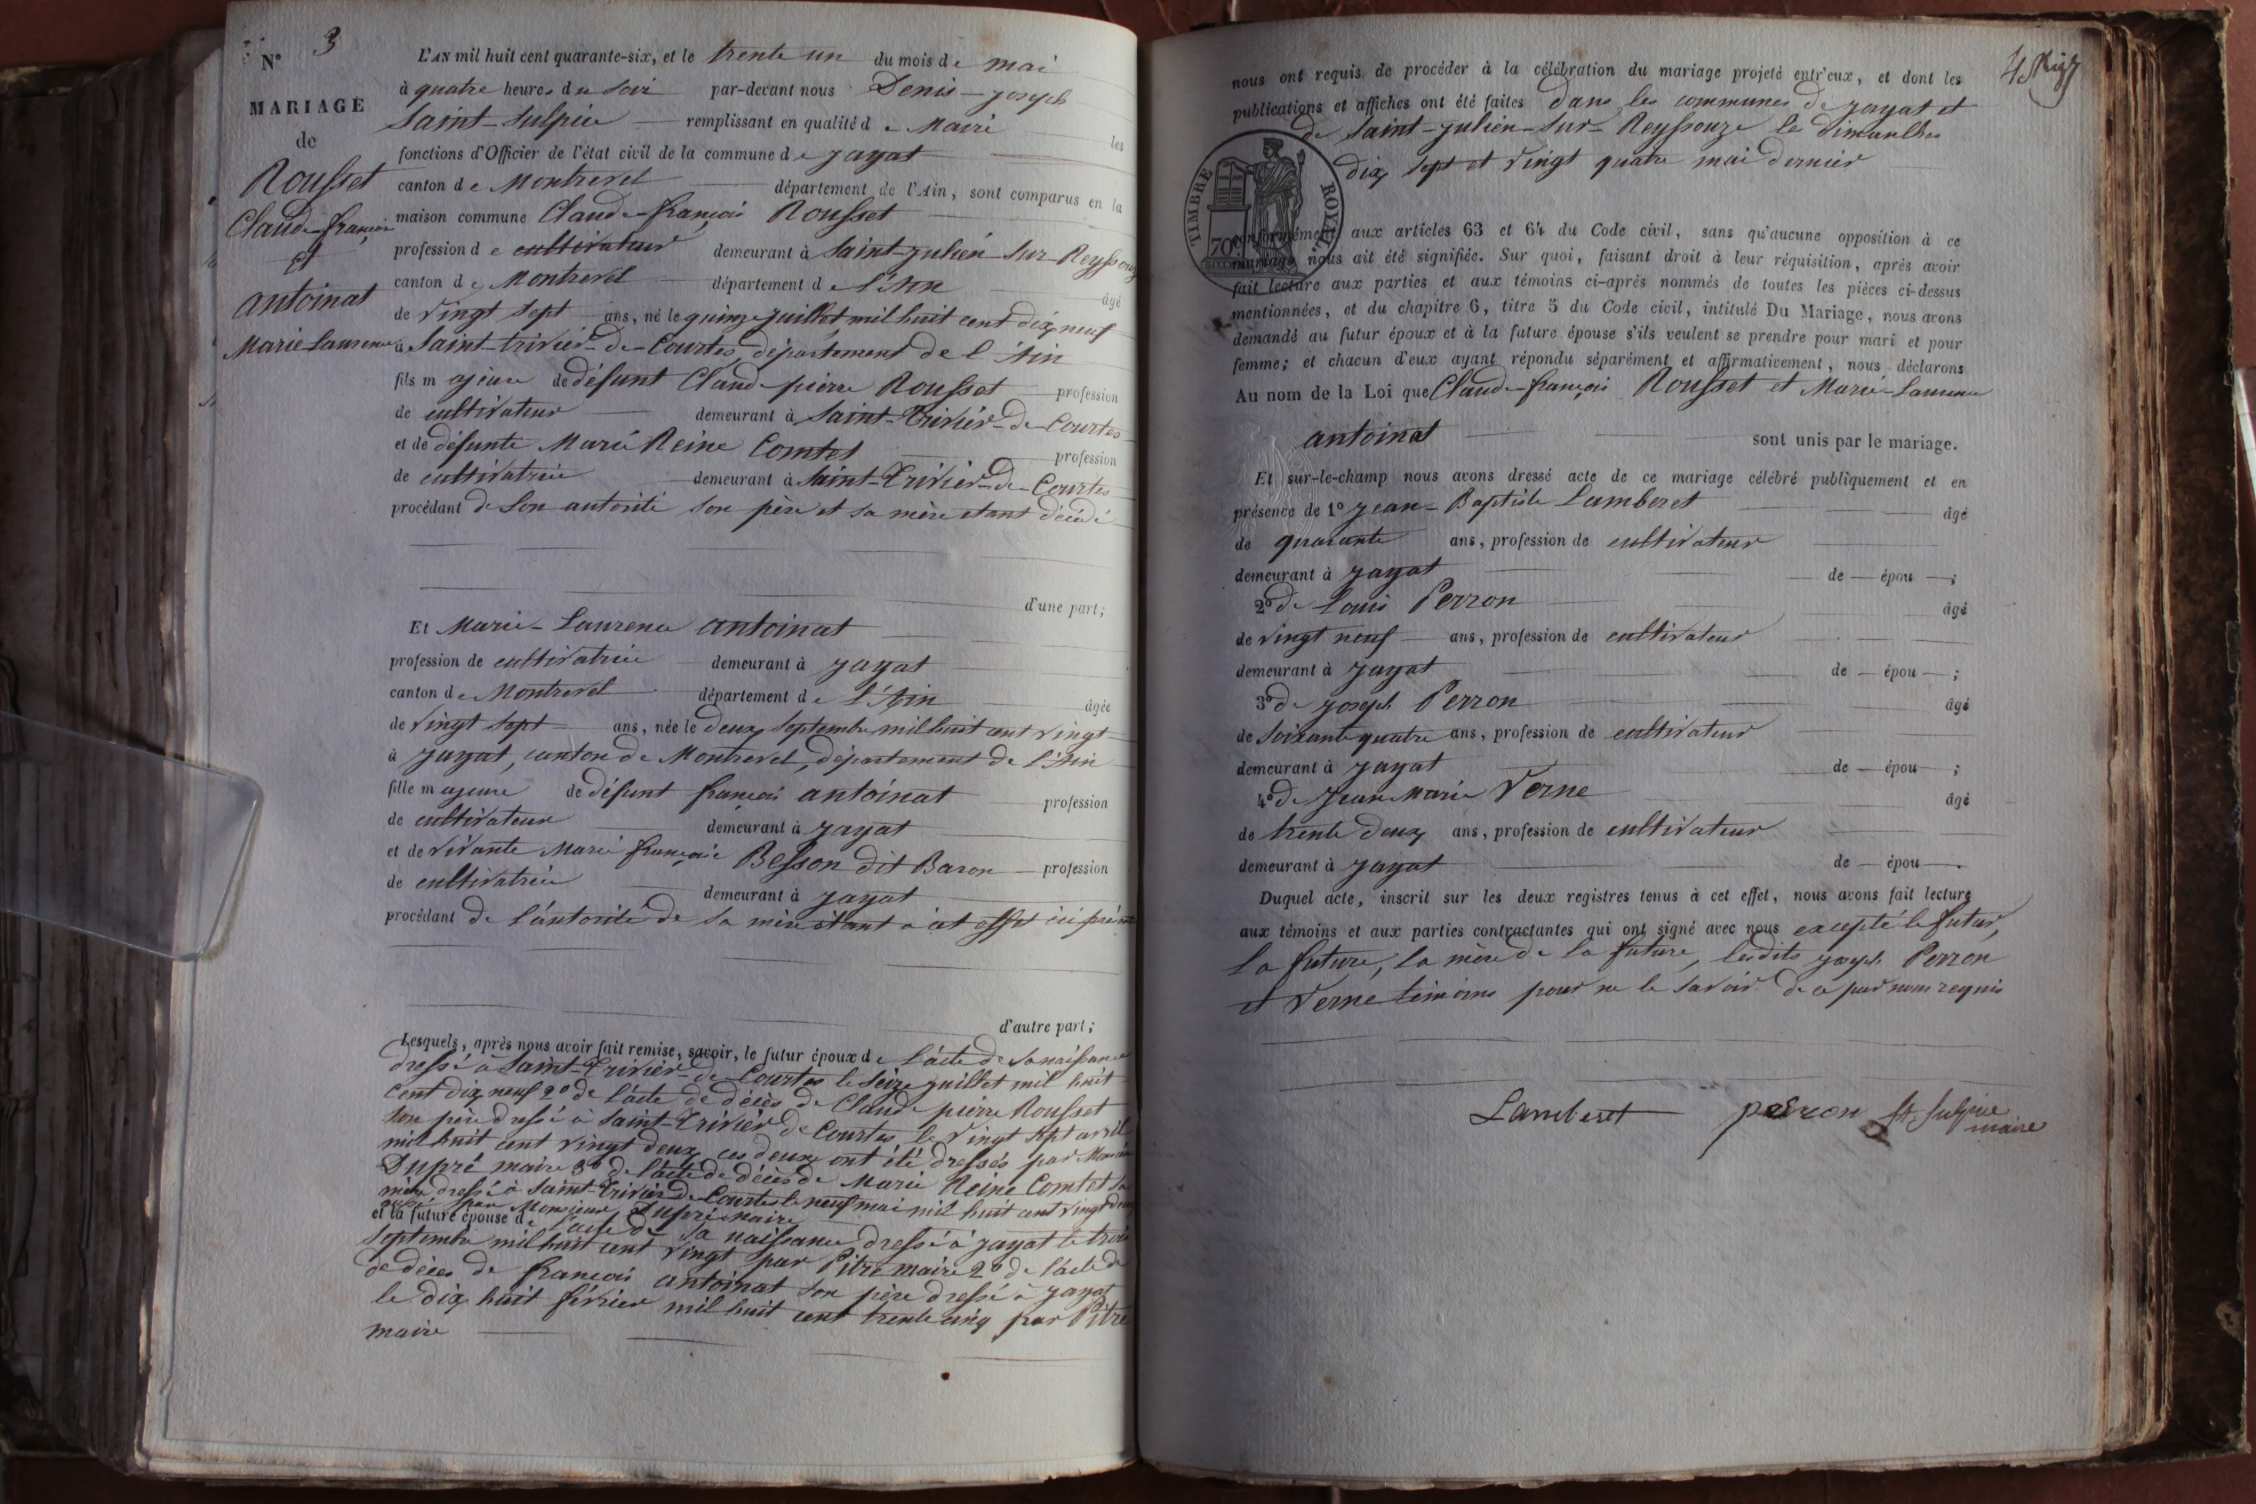 N° 3
MARIAGE
de
Rousset
Claude-françois
et
antoinat
Marie Laurence
L'AN mil huit cent quarante-six, et le trente un du mois de mai
à quatre heures du soir par-devant nous Denis-joseph
Saint-Sulpice remplissant en qualité de Maire les
fonctions d'Officier de l'état civil de la commune de jayat
canton de Montrevel département de l'Ain, sont comparus en la
maison commune Claude-françois Rousset
profession de cultivateur demeurant à Saint-julien Sur-Reyssouze
canton de Montrevel département de l'Ain âgé
de vingt sept ans, né le quinze juillet mil huit cent dix neuf
à Saint-trivier-de-Courtes, département de l'Ain
fils majeur de défunt Claude pierre Rousset profession
de cultivateur demeurant à Saint-Trivier-de-Courtes
et de défunte Marie Reine Comtet profession
de cultivatrice demeurant à Saint-Trivier-de-Courtes
procédant de Son autorité son père et sa mère étant décédé
d'une part;
Et Marie-Laurence antoinat
profession de cultivatrice demeurant à jayat
canton de Montrevel département de l'Ain âgée
de vingt sept ans, née le deux Septembre mil huit cent vingt
à jayat, canton de Montrevel, département de l'Ain
fille majeure de défunt françois antoinat profession
de cultivateur demeurant à jayat
et de vivante Marie françoise Besson dit Baron profession
de cultivatrice demeurant à jayat
procédant de l'autorité de sa mère étant à cet effet ici présente
d'autre part;
Lesquels, après nous avoir fait remise, savoir, le futur époux de l'acte de sa naissance
dressé à Saint-Trivier-de-Courtes le seize juillet mil huit
cent dix neuf 2° de l'acte de décès de Claude pierre Rousset
son père dressé à Saint-Trivier de Courtes, le vingt sept avril
mil huit cent vingt deux ces deux ont été dressés par Monsieur
Dupré maire 3° de l'acte de décès de Marie Reine Comtet sa
mère dressé à Saint-Trivier de Courtes le neuf mai mil huit cent vingt deux
par Monsieur Dupré maire
et la future épouse de l'acte de sa naissance dressé à jayat le trois
Septembre mil huit cent vingt par Pitre maire 2° de l'acte de
de décès de françois antoinat son père dressé à jayat
le dix huit février mil huit cent trente cinq par Pitre
maire
nous ont requis de procéder à la célébration du mariage projeté entr'eux, et dont les
publications et affiches ont été faites dans les communes de jayat et
de Saint-julien-sur-Reyssouze le dimanches
dix sept et vingt quatre mai dernier
TIMBRE ROYAL
70
conformément aux articles 63 et 64 du Code civil, sans qu'aucune opposition à ce
mariage nous ait été signifiée. Sur quoi, faisant droit à leur réquisition, après avoir
fait lecture aux parties et aux témoins ci-après nommés de toutes les pièces ci-dessus
mentionnées, et du chapitre 6, titre 5 du Code civil, intitulé Du Mariage, nous avons
demandé au futur époux et à la future épouse s'ils veulent se prendre pour mari et pour
femme; et chacun d'eux ayant répondu séparément et affirmativement, nous déclarons
Au nom de la Loi que Claude-françois Rousset et Marie-Laurence
antoinat sont unis par le mariage.
Et sur-le-champ nous avons dressé acte de ce mariage célébré publiquement et en
présence de 1° jean-Baptiste Lamberet âgé
de quarante ans, profession de cultivateur
demeurant à jayat de épou ;
2° de Louis Perron âgé
de vingt neuf ans, profession de cultivateur
demeurant à jayat de épou ;
3° de joseph Perron âgé
de soixante quatre ans, profession de cultivateur
demeurant à jayat de épou ;
4° de Jean Marie Verne âgé
de trente deux ans, profession de cultivateur
demeurant à jayat de épou .
Duquel acte, inscrit sur les deux registres tenus à cet effet, nous avons fait lecture
aux témoins et aux parties contractantes qui ont signé avec nous excepté le futur,
la future, la mère de la future, lesdits joseph Perron
et Verne témoins pour ne le savoir de ce par nous requis
Lamberet perron St Sulpice
maire